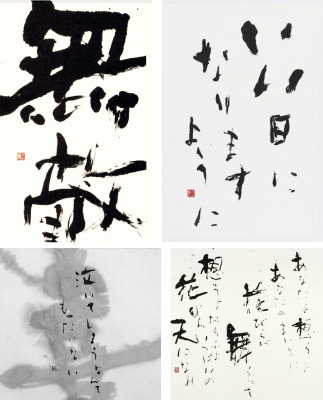 無敵
いい日に
なります
ように
泣いてしまうなんて
もったいない
あなたを想う
あなたのまわりに
花びらが
舞って
想う いっぱいの
花
天になれ